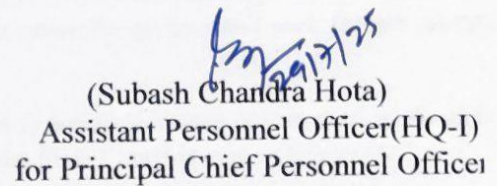 29/7/25
(Subash Chandra Hota)
Assistant Personnel Officer(HQ-I)
for Principal Chief Personnel Officer